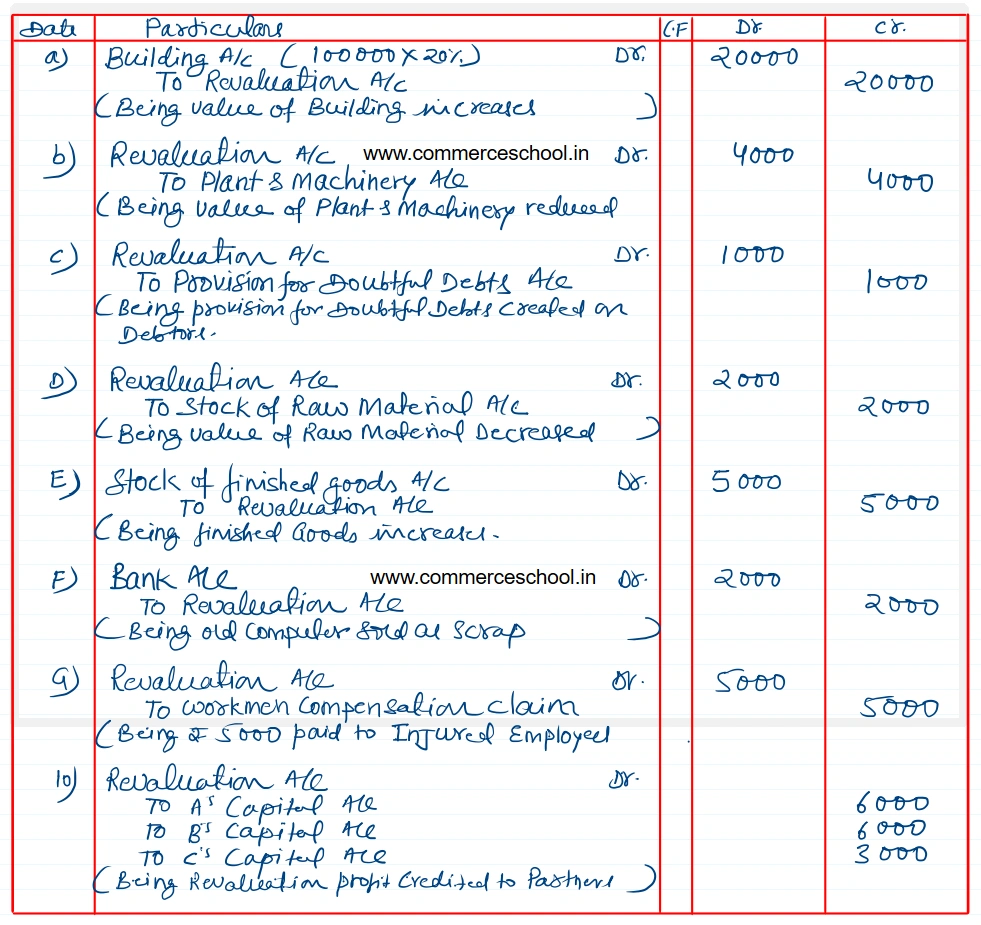 Date Particulars L.F Dr. Cr.
a) Building A/c (100000 × 20%) Dr. 20000
To Revaluation A/c 20000
(Being value of Building increases)
b) Revaluation A/c www.commerceschool.in Dr. 4000
To Plant & Machinery A/c 4000
(Being value of Plant & Machinery reduced
c) Revaluation A/c Dr. 1000
To Provision for Doubtful Debts A/c 1000
(Being provision for Doubtful Debts Created on
Debtors.
D) Revaluation A/c Dr. 2000
To Stock of Raw Material A/c 2000
(Being value of Raw Material Decreased)
E) Stock of finished goods A/c Dr. 5000
To Revaluation A/c 5000
(Being finished Goods increases.
F) Bank A/c www.commerceschool.in Dr. 2000
To Revaluation A/c 2000
(Being old Computer Sold as Scrap)
G) Revaluation A/c Dr. 5000
To Workmen Compensation Claim 5000
(Being ₹ 5000 paid to Injured Employee
10) Revaluation A/c Dr.
To A's Capital A/c 6000
To B's Capital A/c 6000
To C's Capital A/c 3000
(Being Revaluation profit Credited to Partners)